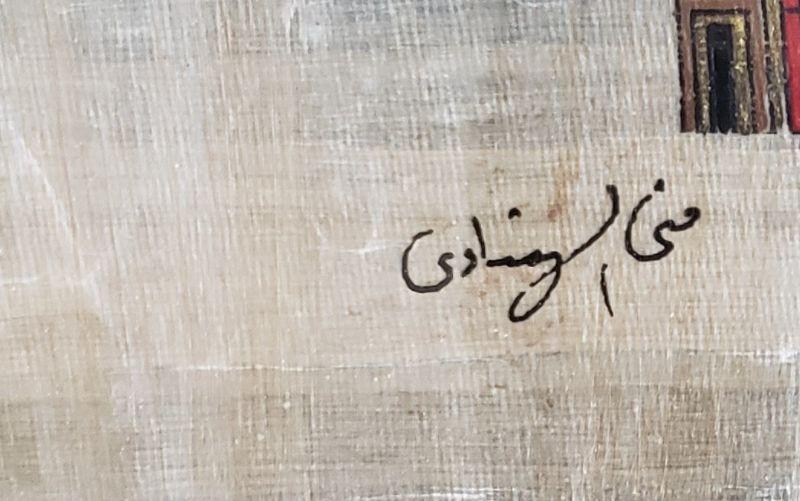 منى الهنداوى